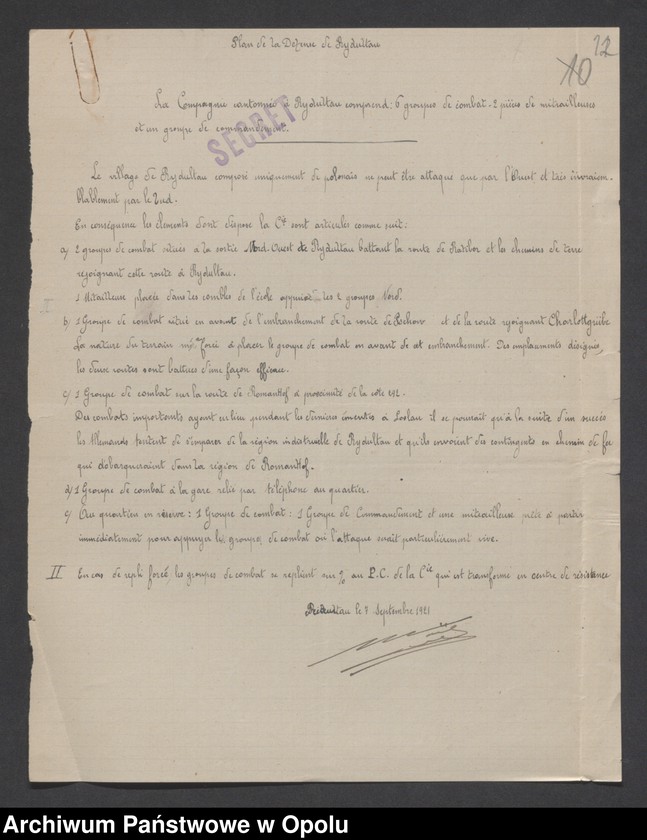 12
10
Plan de la Défense de Rydultau
La Compagnie cantonnée à Rydultau comprend: 6 groupes de combat. 2 pièces de mitrailleuses
et un groupe de commandement.
SECRET
Le village de Rydultau composé uniquement de polonais ne peut être attaqué que par l'Ouest et très invraisem-
blablement par le Sud.
En conséquence les éléments dont dispose la Cie sont articulés comme suit:
a) 2 groupes de combat situés à la sortie Nord Ouest de Rydultau battant la route de Ratibor et les chemins de terre
rejoignant cette route à Rydultau.
1 Mitrailleuse placée dans les combles de l'école appuiant les 2 groupes Nord.
b) 1 Groupe de combat situé en avant de l'embranchement de la route de et de la route rejoignant Charlottgrübe
La nature du terrain m'a forcé à placer le groupe de combat en avant de cet embranchement. Des emplacements désignés,
les deux routes sont battues d'une façon efficace.
c) 1 Groupe de combat sur la route de Romanhof à proximité de la côte
Des combats importants ayant eu lieu pendant les derniers à Loslau il se pourrait qu'à la suite d'un succès
les Allemands tentent de s'emparer de la région industruelle de Rydultau et qu'ils envoient des contingents en chemin de fer
qui débarqueraient dans la région de Romanhof.
d) 1 Groupe de combat à la gare relié par téléphone au quartier.
e) Au quartier en réserve: 1 Groupe de combat: 1 Groupe de Commandement et une mitrailleuse prête à partir
immédiatement pour appuyer les groupes de combat où l'attaque serait particulièrement vive.
II En cas de repli forcé, les groupes de combat se replient sur au P.C. de la Cie qui est transformé en centre de résistance
Rydultau le Septembre 1921
Archiwum Państwowe w Opolu